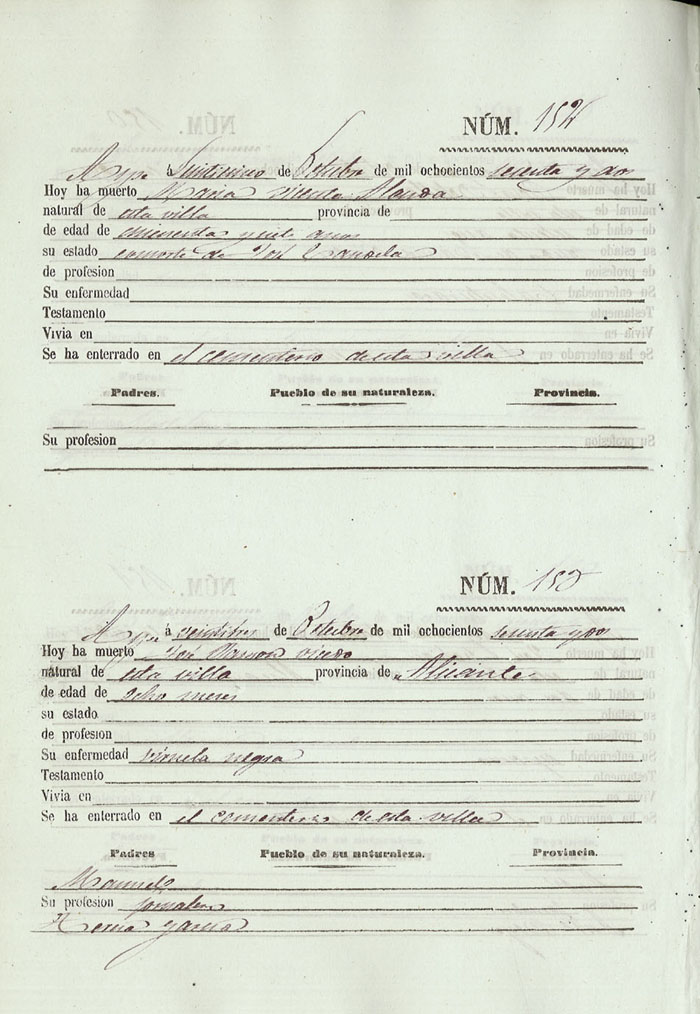 NÚM. 152
Aspe á de Octubre de mil ochocientos sesenta y dos
Hoy ha muerto Maria Vicenta
natural de esta villa provincia de
de edad de cincuenta y siete años
su estado consorte de José Candela
de profesion
Su enfermedad
Testamento
Vivia en
Se ha enterrado en el cementerio de esta villa
Padres. Pueblo de su naturaleza. Provincia.
Su profesion
NÚM. 153
Aspe á veintitres de Octubre de mil ochocientos sesenta y dos
Hoy ha muerto José Ramon
natural de esta villa provincia de Alicante
de edad de ocho meses
su estado
de profesion
Su enfermedad viruela negra
Testamento
Vivia en
Se ha enterrado en el cementerio de esta villa
Padres Pueblo de su naturaleza. Provincia.
Manuel
Su profesion jornalero
garcia